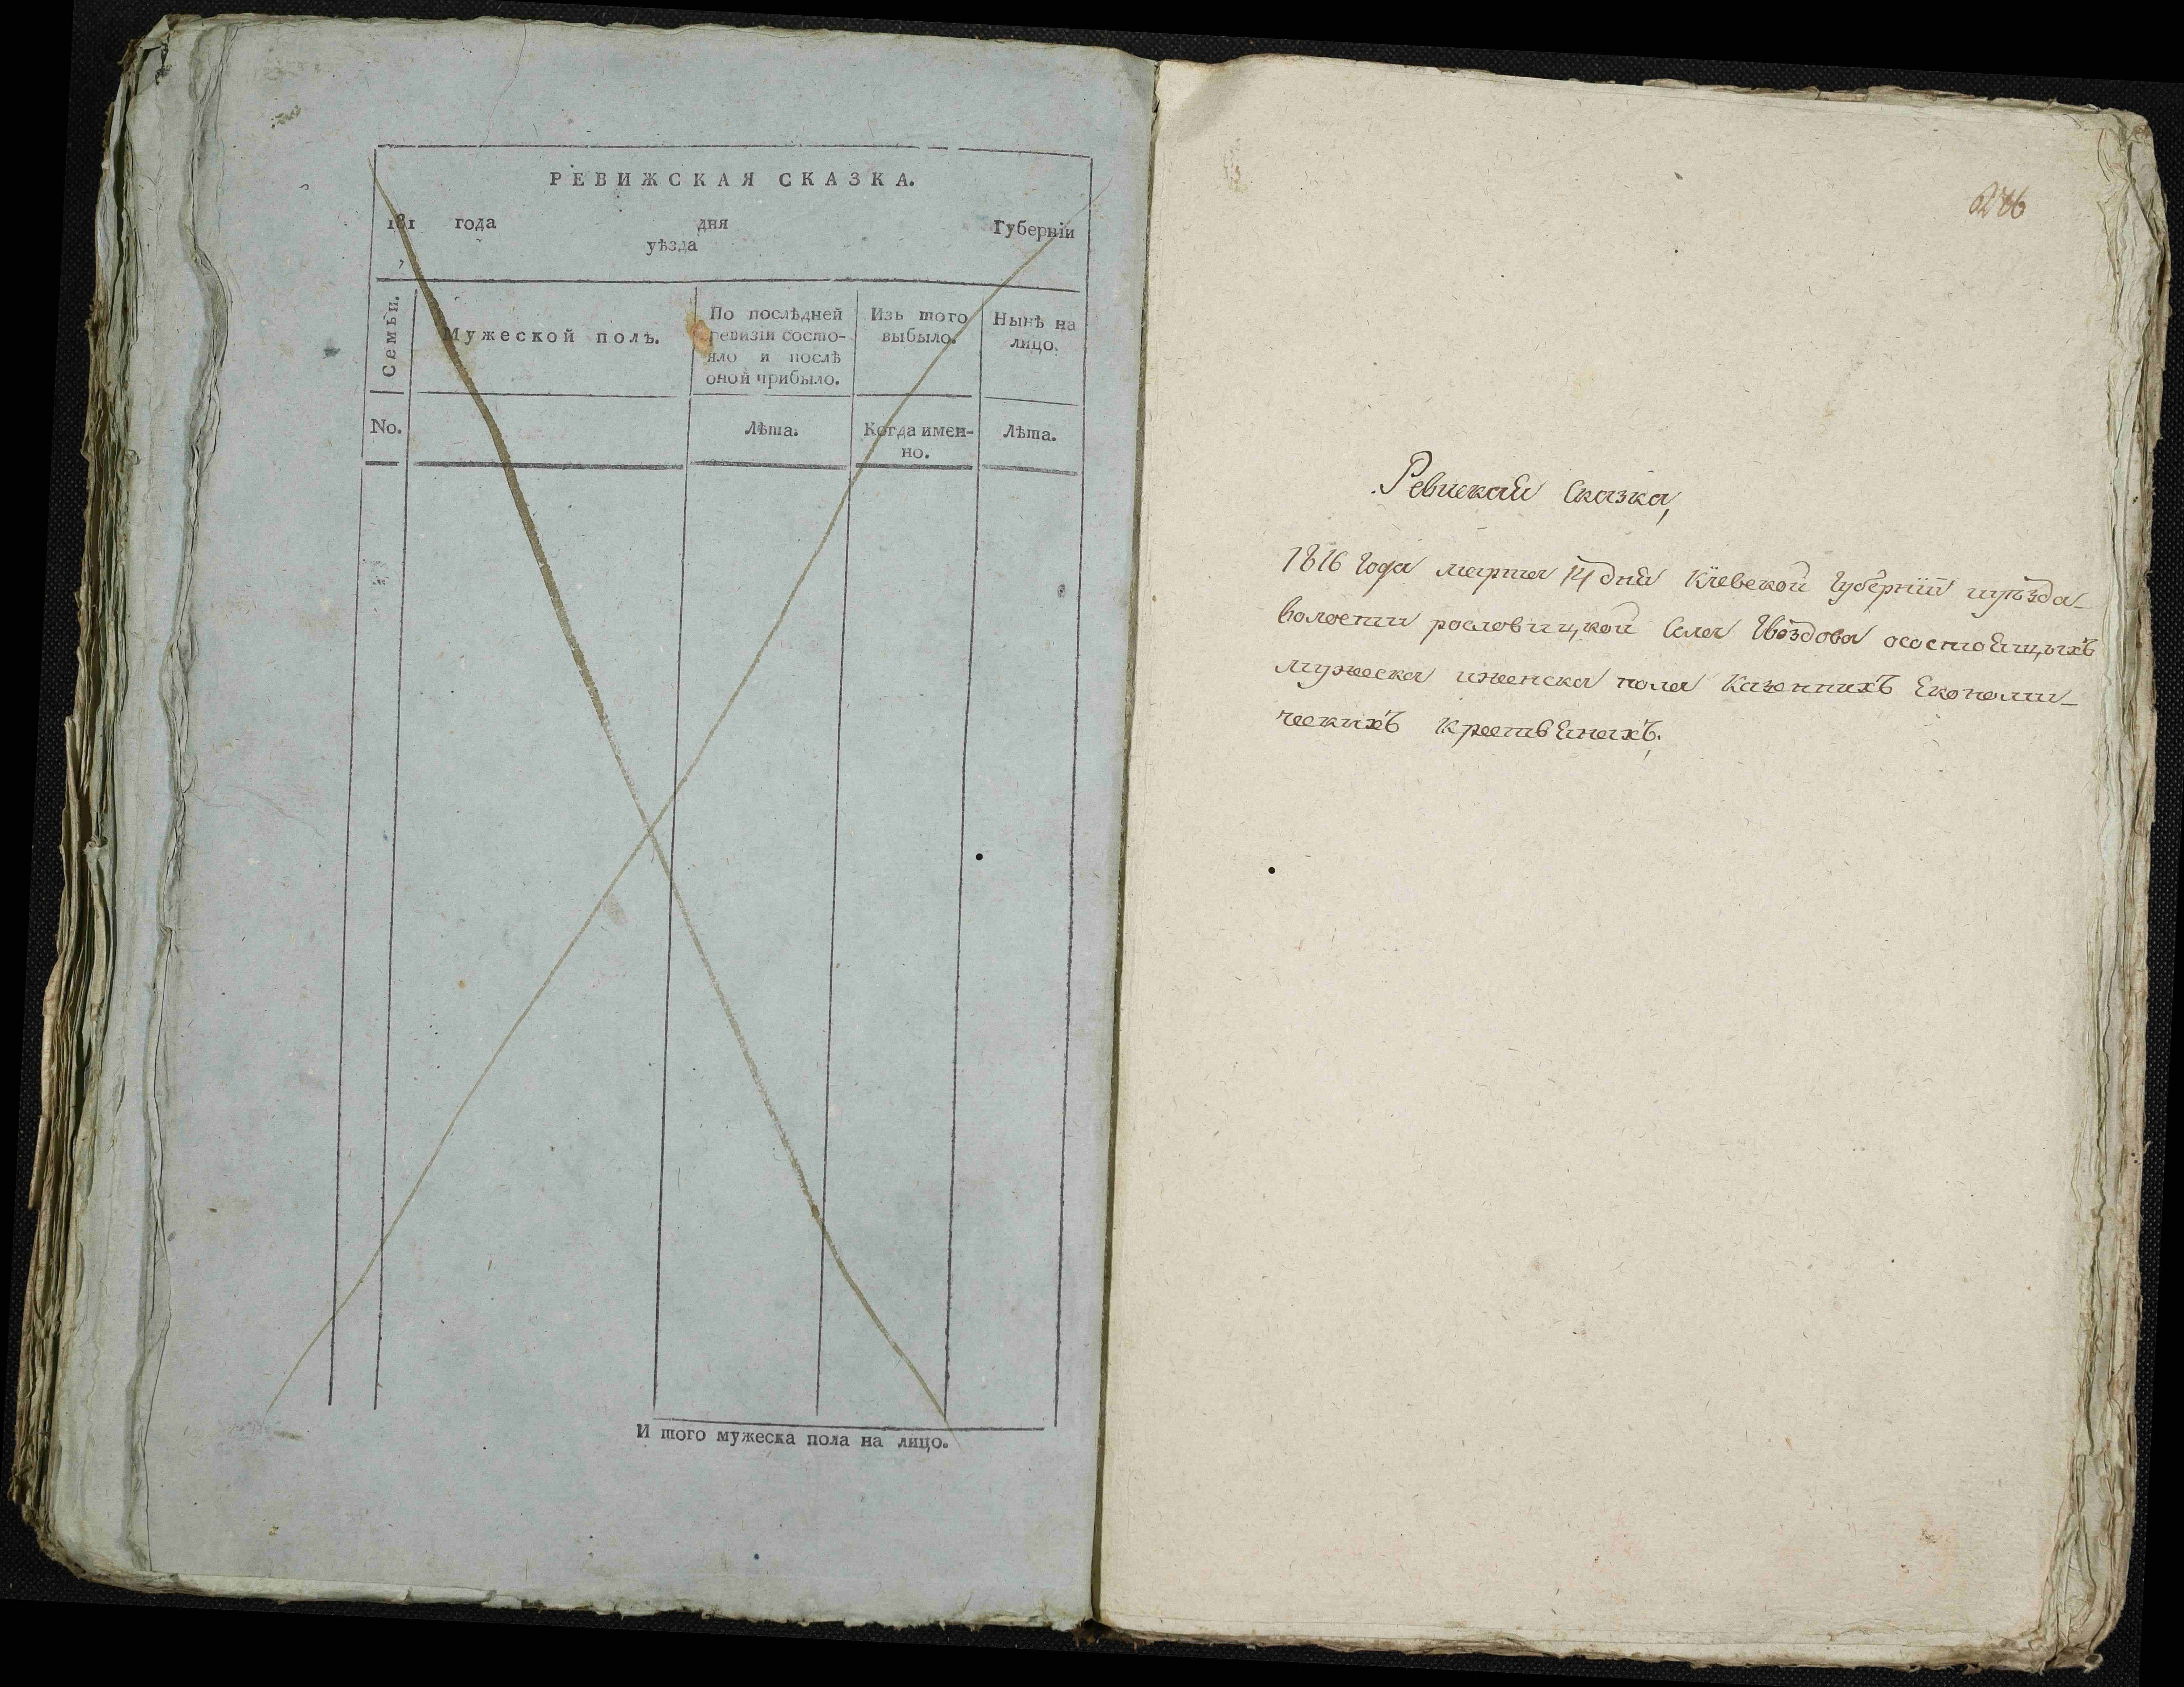 РЕВИЖСКАЯ СКАЗКА.
181 года дня Губерніи
уѣзда
Семьи.
Мужеской полъ.
По послѣдней
ревизіи состо-
яло и послѣ
оной прибыло.
Изъ того
выбыло.
Нынѣ на
лицо.
No.
Лѣта.
Когда имен-
но.
Лѣта.
И того мужеска пола на лицо.
276
Ревиская Сказка,
1816 Года марта 14 дня Кіевской Губерніи иуѣзда
волости рословицкой Села Гвоздова осостоящихъ
мужеска иженска пола Казеннихъ Економи-
ческихъ Крестьянахъ.